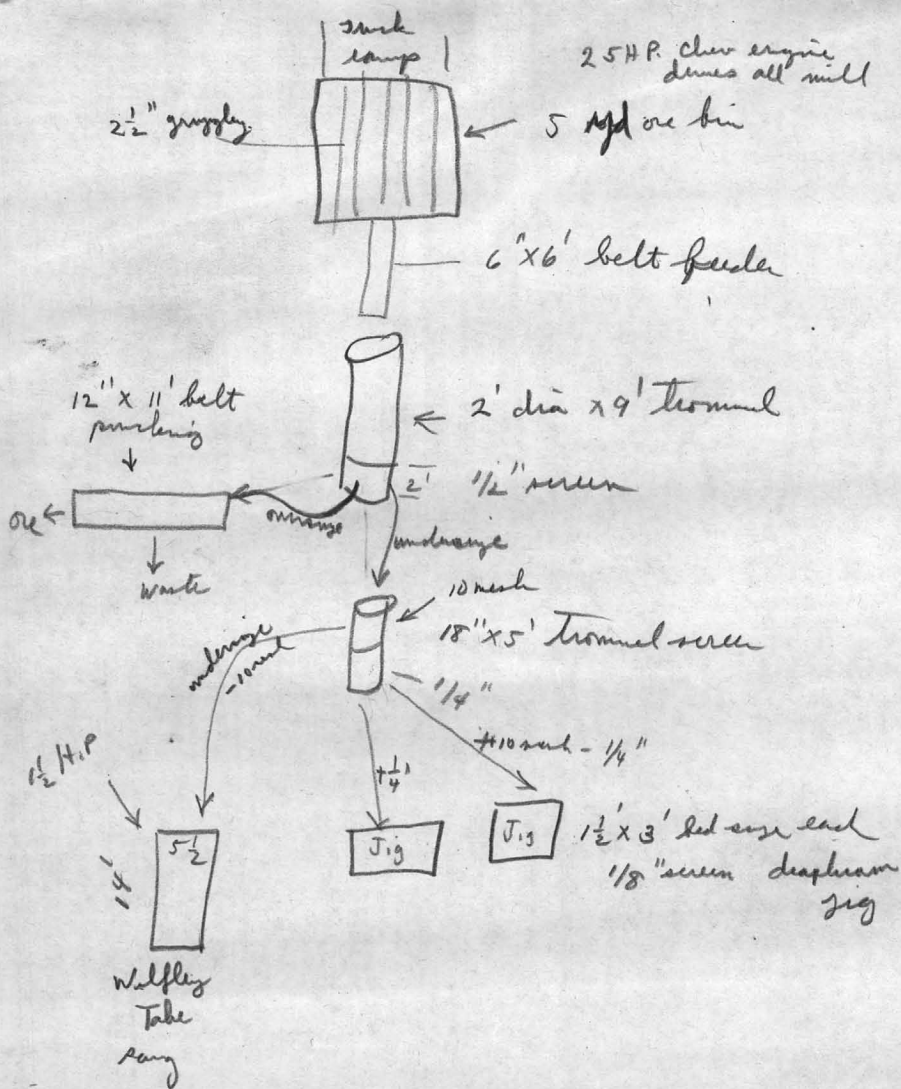 Truck
ramp
25 H.P. Chev engine
drives all mill
2 1/2" gryzzley
5 yd ore bin
6"x6' belt feeder
12" x 11' belt
2' dia x 9' trommel
2' 1/2" screen
ore
oversize
undersize
waste
10 mesh
18"x5' trommel screen
undersize
-10 mesh
1/4"
+10 mesh - 1/4"
+1/4"
1 1/2 H.P
5 1/2
14'
Jig
Jig
1 1/2' x 3' bed size each
1/8" screen diaphram
jig
Wilfley
Table